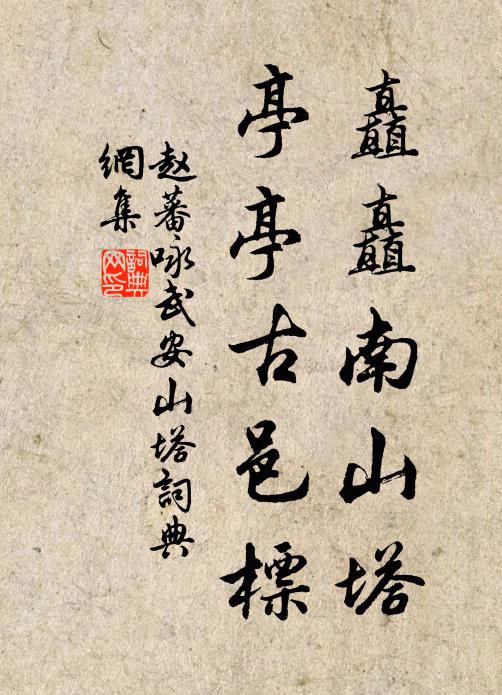 矗矗南山塔
亭亭古邑標
赵蕃咏武安山塔詞典
網集
詞典
网印